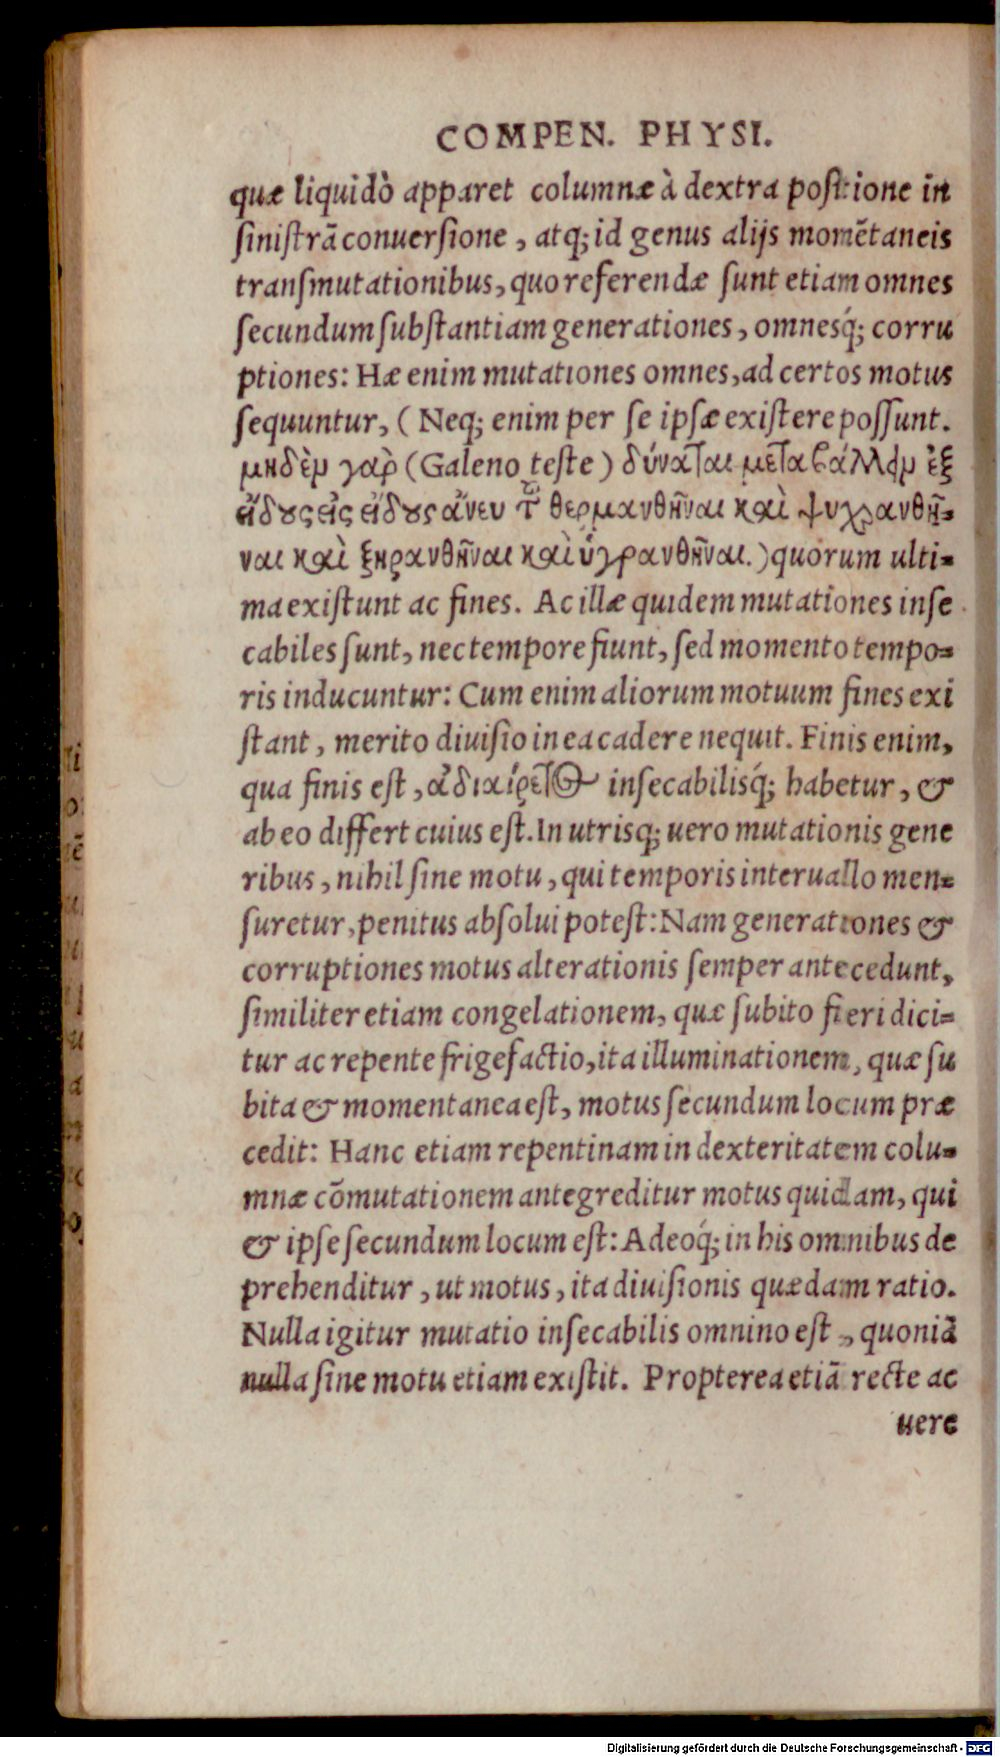 COMPEN. PHYSI.
quæ liquidò apparet columnæ à dextra positione in
ſiniſtrã conuerſione, atq; id genus alijs momẽtaneis
tranſmutationibus, quo referendæ ſunt etiam omnes
ſecundum ſubſtantiam generationes, omnesq́; corru
ptiones: Hæ enim mutationes omnes, ad certos motus
ſequuntur, (Neq; enim per ſe ipſæ exiſtere poſſunt.
μηδὲν γαρ̀ (Galeno teſte) δύναται μεταβάλλειν ἐξ
εἴδους εἰς εἴδους ἄνευ τοῦ θερμανθῆναι καὶ ψυχρανθῆ-
ναι καὶ ξηρανθῆναι καὶ ὑγρανθῆναι.) quorum ulti-
ma exiſtunt ac fines. Ac illæ quidem mutationes inſe
cabiles ſunt, nec tempore fiunt, ſed momento tempo-
ris inducuntur: Cum enim aliorum motuum fines exi
ſtant, merito diuiſio in ea cadere nequit. Finis enim,
qua finis eſt, ἀδιαίρετος inſecabilisq́; habetur, &
ab eo differt cuius eſt. In utrisq; uero mutationis gene
ribus, nihil ſine motu, qui temporis interuallo men-
ſuretur, penitus abſolui poteſt: Nam generationes &
corruptiones motus alterationis ſemper antecedunt,
ſimiliter etiam congelationem, quæ ſubito fieri dici-
tur ac repente frigefactio, ita illuminationem, quæ ſu
bita & momentanea eſt, motus ſecundum locum præ
cedit: Hanc etiam repentinam in dexteritatem colu-
mnæ cõmutationem antegreditur motus quidam, qui
& ipſe ſecundum locum eſt: Adeoq́; in his omnibus de
prehenditur, ut motus, ita diuiſionis quædam ratio.
Nulla igitur mutatio inſecabilis omnino eſt, quoniã
nulla ſine motu etiam exiſtit. Propterea etiã recte ac
uere
Digitalisierung gefördert durch die Deutsche Forschungsgemeinschaft - DFG